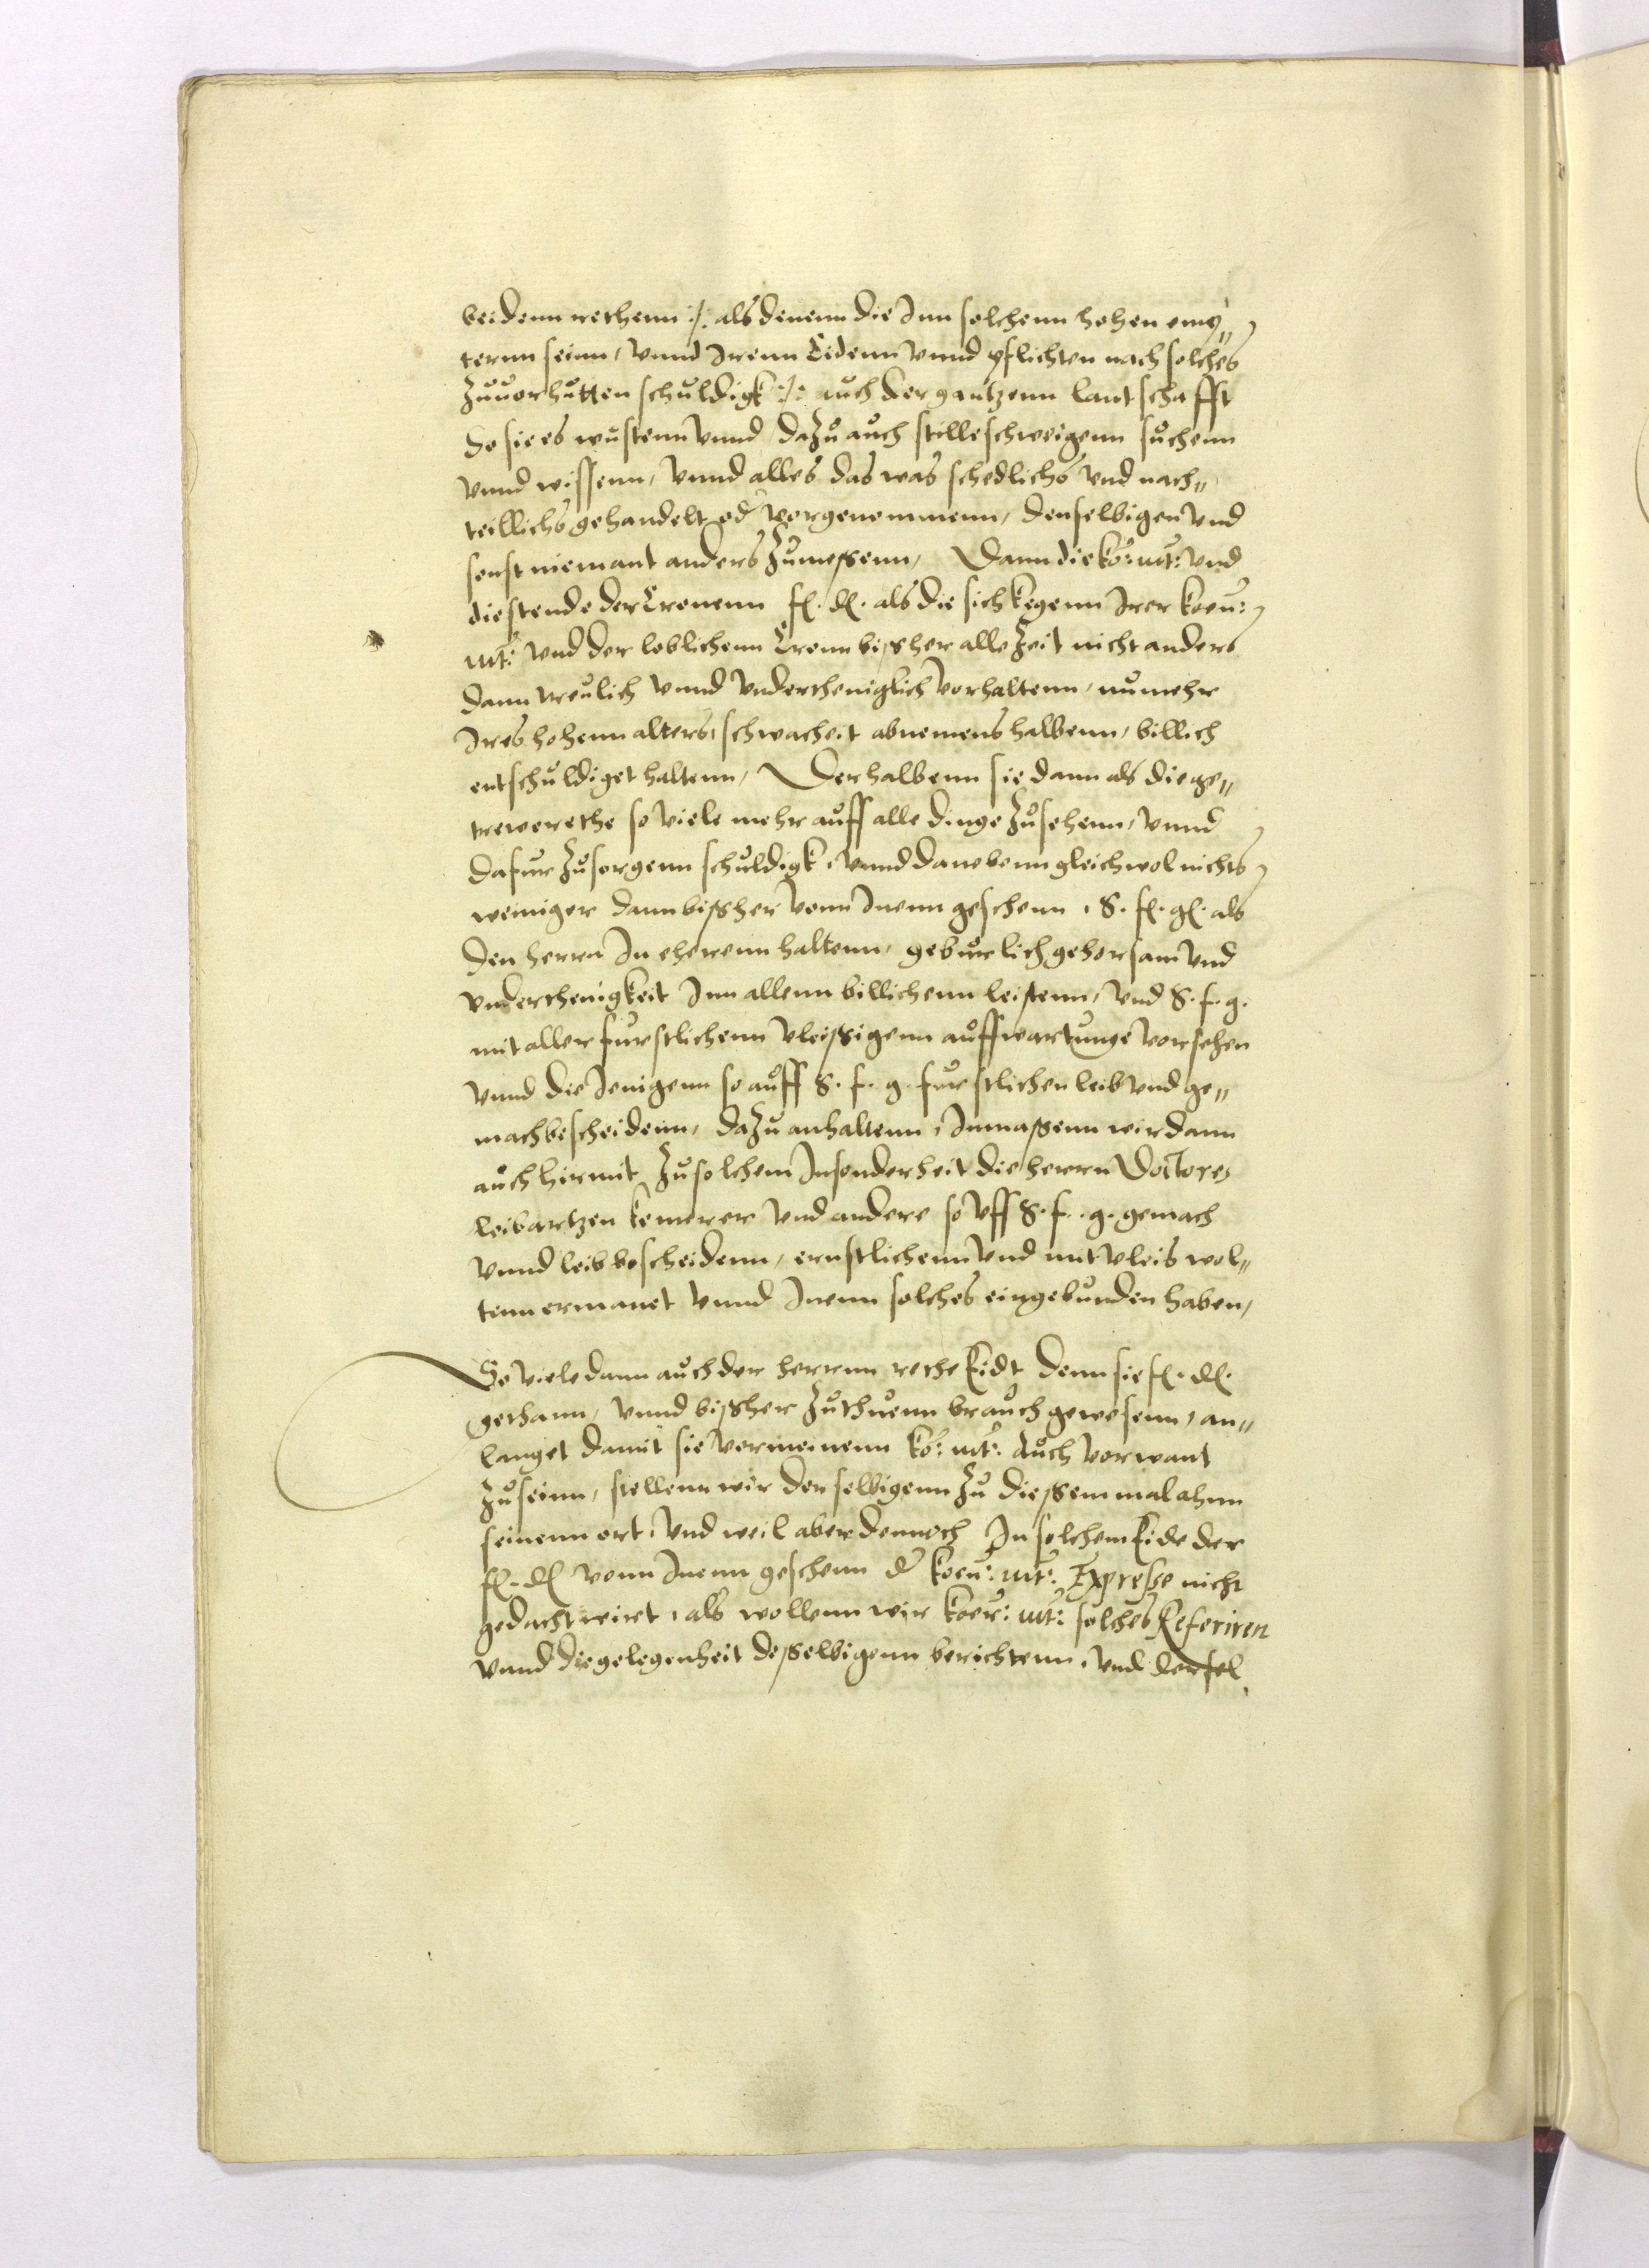 beidenn rethenn :/: als denenn die Inn solchenn hohen emp=
ternn seinn, vnnd Irenn Eidenn vnnd pflichten nach solches
zuuorhutten schuldigk :/: auch der gantzenn lantschafft
So sie es wustenn vnnd dazu auch stilleschweigenn suchenn
vnnd wissenn, vnnd alles das was schedlichs vnd nach=
teillichs gehandelt od vorgenommenn, denselbigen vnd
sonst niemant anders zumessenn, Dann die ko: mt: vnd
die stende der Cronenn fl. dl. als die sich kegenn Irer koen:
mt: vnd der loblichenn Cronn bißher alle Zeit nicht anders
dann treulich vnnd vndertheniglich vorhaltenn, numehr
Ires hohenn alters, schwacheit abnemens halbenn, billich
entschuldiget haltenn, Derhalbenn sie dann als die ge=
trewe rethe so viele mehr auff alle dinge zusehenn, vnnd
dafur zusorgenn schuldigk, vnnd danebenn gleichwol nichts
weiniger dann bißher vonn Inenn geschenn, S. fl. gl. als
den herrn In eherenn haltenn, geburlich gehorsam vnd
vnderthenigkeit Inn allenn billichenn leistenn, vnd S. f. g.
mit aller furstlichenn vleißigenn auffwartunge vorsehen
vnnd die Jenigenn so auff S. f. g. furstlichen leib vnd ge=
mach bescheidenn, dazu anhaltenn, Inmaßenn wir dann
auch hirmit zu solchem Insonderheit die herrn Doctores
leibartzen kemerer vnd andere so vff S. f. g. gemach
vnnd leib bescheidenn, ernstlichenn vnd mit vleis wol=
tenn ermanet vnnd Inenn solches eingebunden haben,
So viele dann auch der herrnn rethe Eidt denn sie fl. dl.
gethann, vnnd bißher zuthuenn brauch gewesenn, an=
langet damit sie vormeinenn ko: mt: auch vorwant
zuseinn, stellenn wir denselbigenn zu diessem mal ahnn
seinenn ort, vnd weil aber dennoch In solchem Eide der
fl. dl vonn Inenn geschenn d koen: mt: Expresse nicht
gedacht wirt, als wollenn wir koer: mt: solches Referiren
vnnd die gelegenheit desselbigenn berichtenn, vnd dersel